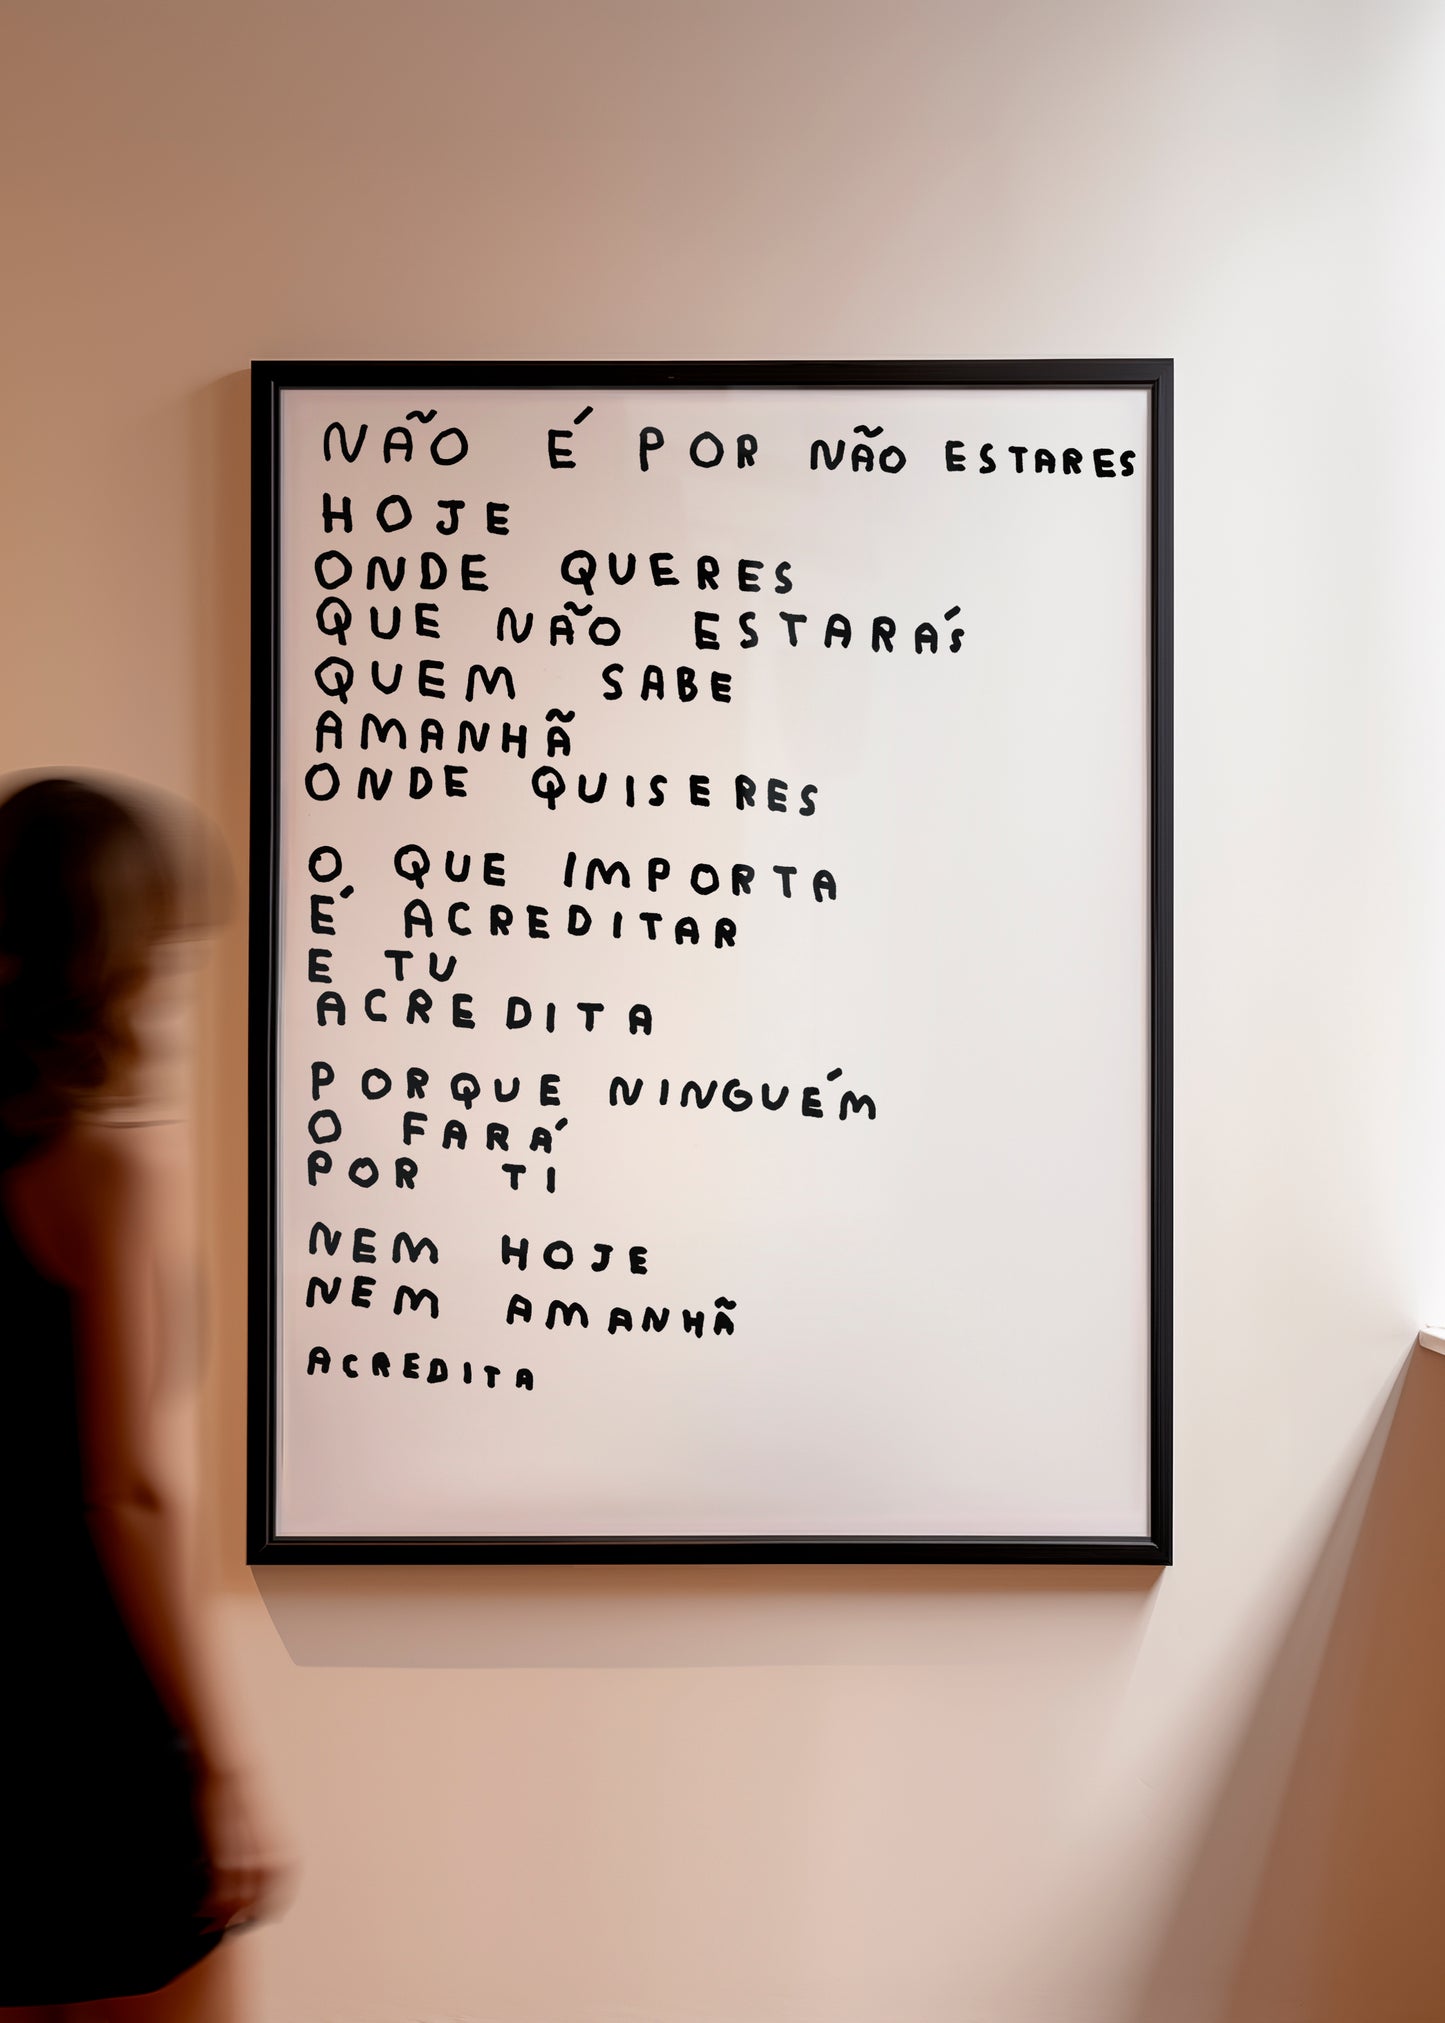 NÃO É POR NÃO ESTARES
HOJE
ONDE QUERES
QUE NÃO ESTARÁS
QUEM SABE
AMANHÃ
ONDE QUISERES
O QUE IMPORTA
É ACREDITAR
E TU
ACREDITA
PORQUE NINGUÉM
O FARÁ
POR TI
NEM HOJE
NEM AMANHÃ
ACREDITA